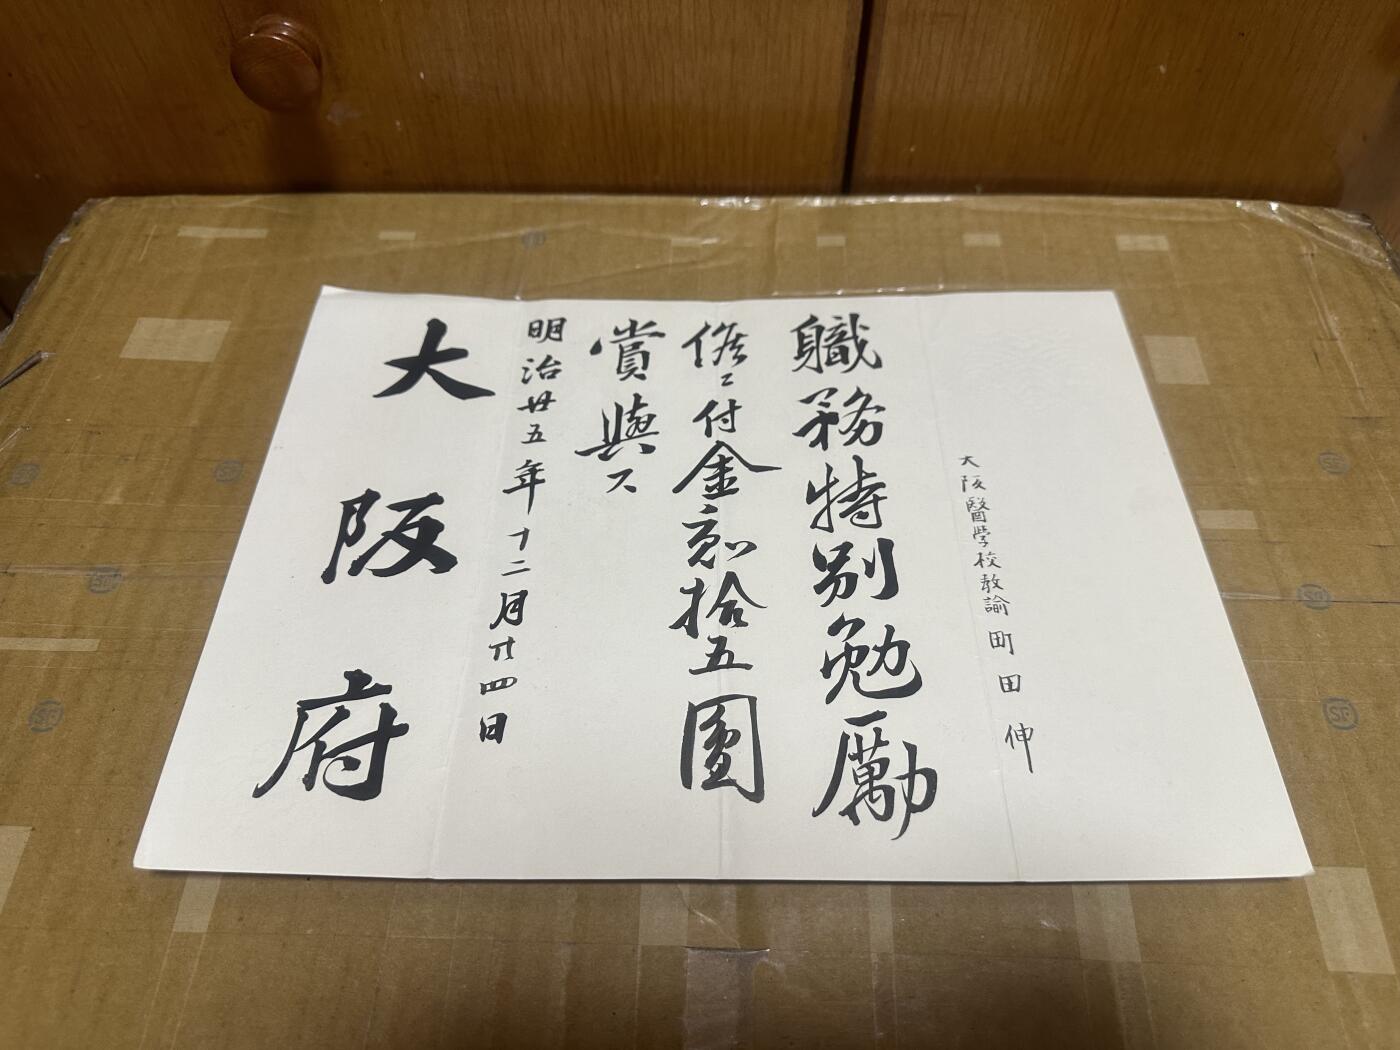 大阪醫學校教諭 町田伸
職務特別勉勵
候ニ付金貳拾五圓
賞與ス
明治廿五年十二月廿四日
大阪府